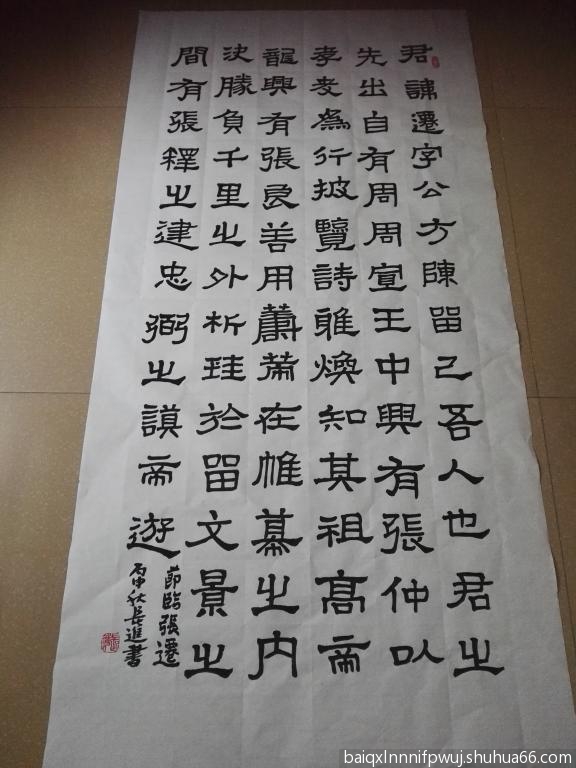 君諱遷字公方陳留己吾人也君之
先出自有周周宣王中興有張仲以
孝友為行披覽詩雅煥知其祖高帝
龍興有張良善用籌策在帷幕之内
決勝負千里之外析珪於留文景之
間有張釋之建忠弼之謨帝遊
節臨張遷
丙申秋長進書
baiqxlnnnifpwuj.shuhua66.com